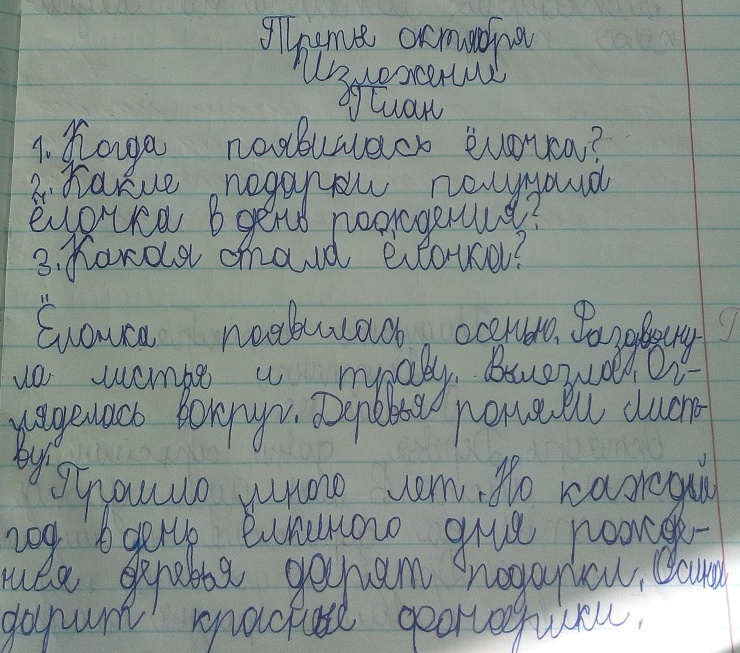 Третье октября
Изложение
План
1. Когда появилась ёлочка?
2. Какие подарки получала
ёлочка в день рождения?
3. Какая стала ёлочка?
Ёлочка появилась осенью. Раздвину-
ла листья и траву. Вылезла. Ог-
ляделась вокруг. Деревья роняли листь-
ву.
Прошло много лет. Но каждый
год в день ёлкиного дня рожде-
ния деревья дарят подарки. Осина
дарит красные фонарики.